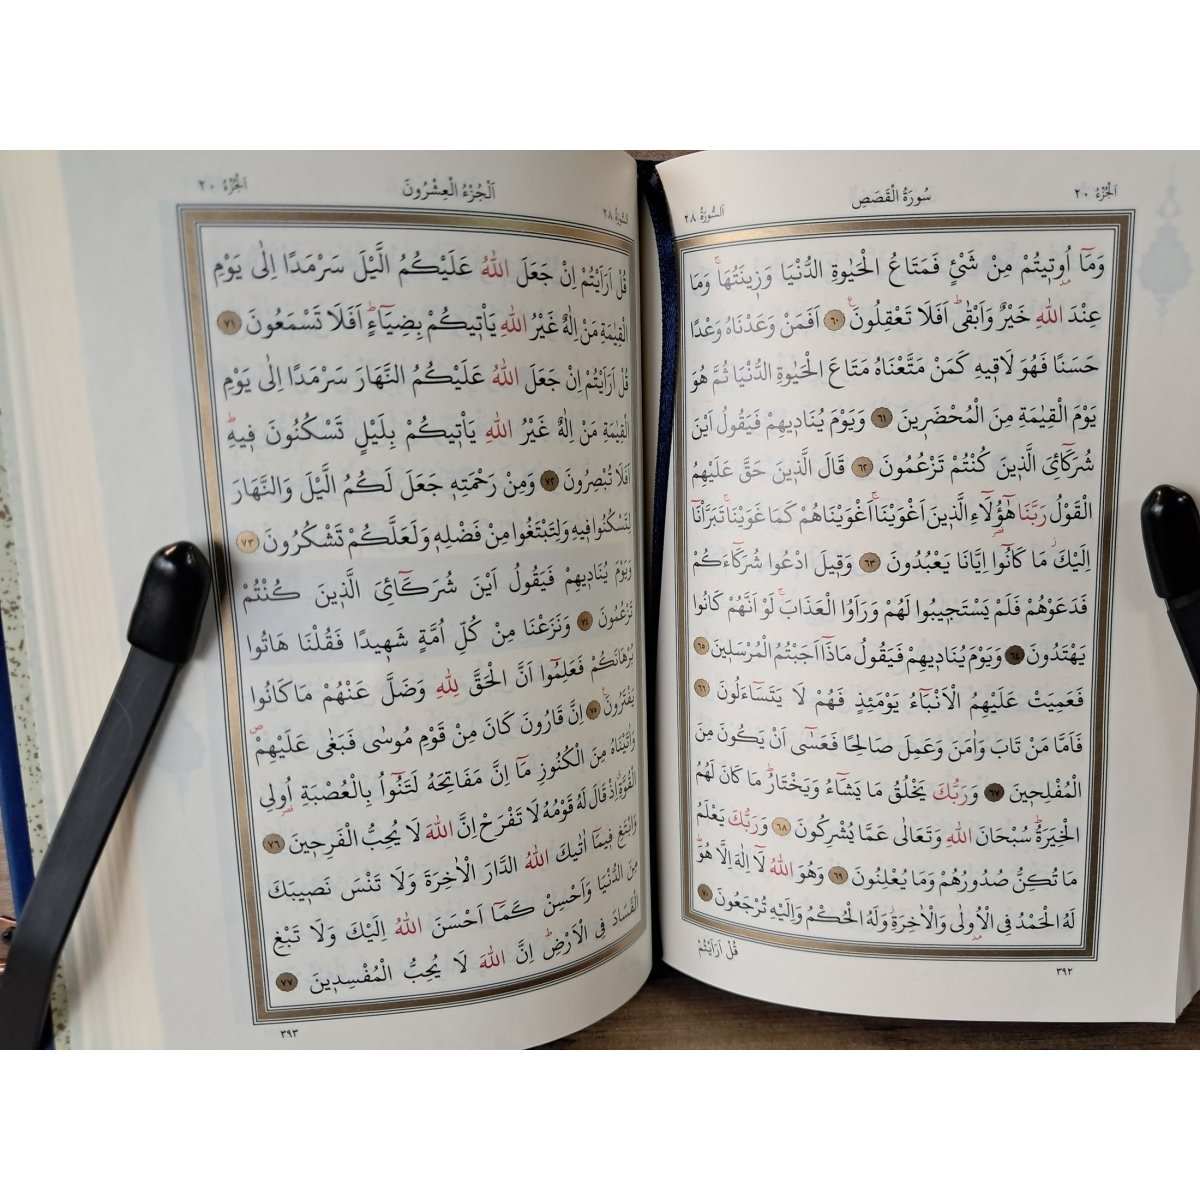 اَلْجُزْءُ ٢٠
سُورَةُ الْقَصَصِ
اَلسُّورَةُ ٢٨
وَمَٓا اُو۫ت۪يتُمْ مِنْ شَيْءٍ فَمَتَاعُ الْحَيٰوةِ الدُّنْيَا وَز۪ينَتُهَاۚ وَمَا
عِنْدَ اللّٰهِ خَيْرٌ وَاَبْقٰىۜ اَفَلَا تَعْقِلُونَ۟ ٦٠ اَفَمَنْ وَعَدْنَاهُ وَعْدًا
حَسَنًا فَهُوَ لَاق۪يهِ كَمَنْ مَتَّعْنَاهُ مَتَاعَ الْحَيٰوةِ الدُّنْيَا ثُمَّ هُوَ
يَوْمَ الْقِيٰمَةِ مِنَ الْمُحْضَر۪ينَ ٦١ وَيَوْمَ يُنَاد۪يهِمْ فَيَقُولُ اَيْنَ
شُرَكَٓائِيَ الَّذ۪ينَ كُنْتُمْ تَزْعُمُونَ ٦٢ قَالَ الَّذ۪ينَ حَقَّ عَلَيْهِمُ
الْقَوْلُ رَبَّنَا هٰٓؤُ۬لَٓاءِ الَّذ۪ينَ اَغْوَيْنَاۚ اَغْوَيْنَاهُمْ كَمَا غَوَيْنَاۚ تَبَرَّأْنَٓا
اِلَيْكَۘ مَا كَانُٓوا اِيَّانَا يَعْبُدُونَ ٦٣ وَق۪يلَ ادْعُوا شُرَكَٓاءَكُمْ
فَدَعَوْهُمْ فَلَمْ يَسْتَج۪يبُوا لَهُمْ وَرَاَوُا الْعَذَابَۚ لَوْ اَنَّهُمْ كَانُوا
يَهْتَدُونَ ٦٤ وَيَوْمَ يُنَاد۪يهِمْ فَيَقُولُ مَاذَٓا اَجَبْتُمُ الْمُرْسَل۪ينَ ٦٥
فَعَمِيَتْ عَلَيْهِمُ الْاَنْبَٓاءُ يَوْمَئِذٍ فَهُمْ لَا يَتَسَٓاءَلُونَ ٦٦
فَاَمَّا مَنْ تَابَ وَاٰمَنَ وَعَمِلَ صَالِحًا فَعَسٰٓى اَنْ يَكُونَ مِنَ
الْمُفْلِح۪ينَ ٦٧ وَرَبُّكَ يَخْلُقُ مَا يَشَٓاءُ وَيَخْتَارُۜ مَا كَانَ لَهُمُ
الْخِيَرَةُۜ سُبْحَانَ اللّٰهِ وَتَعَالٰى عَمَّا يُشْرِكُونَ ٦٨ وَرَبُّكَ يَعْلَمُ
مَا تُكِنُّ صُدُورُهُمْ وَمَا يُعْلِنُونَ ٦٩ وَهُوَ اللّٰهُ لَٓا اِلٰهَ اِلَّا هُوَۜ
لَهُ الْحَمْدُ فِي الْاُو۫لٰى وَالْاٰخِرَةِۘ وَلَهُ الْحُكْمُ وَاِلَيْهِ تُرْجَعُونَ ٧٠
قُلْ اَرَاَيْتُمْ
٣٩٢
اَلسُّورَةُ ٢٨
اَلْجُزْءُ الْعِشْرُونَ
اَلْجُزْءُ ٢٠
قُلْ اَرَاَيْتُمْ اِنْ جَعَلَ اللّٰهُ عَلَيْكُمُ الَّيْلَ سَرْمَدًا اِلٰى يَوْمِ
الْقِيٰمَةِ مَنْ اِلٰهٌ غَيْرُ اللّٰهِ يَأْت۪يكُمْ بِضِيَٓاءٍۜ اَفَلَا تَسْمَعُونَ ٧١
قُلْ اَرَاَيْتُمْ اِنْ جَعَلَ اللّٰهُ عَلَيْكُمُ النَّهَارَ سَرْمَدًا اِلٰى يَوْمِ
الْقِيٰمَةِ مَنْ اِلٰهٌ غَيْرُ اللّٰهِ يَأْت۪يكُمْ بِلَيْلٍ تَسْكُنُونَ ف۪يهِۜ
اَفَلَا تُبْصِرُونَ ٧٢ وَمِنْ رَحْمَتِه۪ جَعَلَ لَكُمُ الَّيْلَ وَالنَّهَارَ
لِتَسْكُنُوا ف۪يهِ وَلِتَبْتَغُوا مِنْ فَضْلِه۪ وَلَعَلَّكُمْ تَشْكُرُونَ ٧٣
وَيَوْمَ يُنَاد۪يهِمْ فَيَقُولُ اَيْنَ شُرَكَٓائِيَ الَّذ۪ينَ كُنْتُمْ
تَزْعُمُونَ ٧٤ وَنَزَعْنَا مِنْ كُلِّ اُمَّةٍ شَه۪يدًا فَقُلْنَا هَاتُوا
بُرْهَانَكُمْ فَعَلِمُٓوا اَنَّ الْحَقَّ لِلّٰهِ وَضَلَّ عَنْهُمْ مَا كَانُوا
يَفْتَرُونَ۟ ٧٥ اِنَّ قَارُونَ كَانَ مِنْ قَوْمِ مُوسٰى فَبَغٰى عَلَيْهِمْۖ
وَاٰتَيْنَاهُ مِنَ الْكُنُوزِ مَٓا اِنَّ مَفَاتِحَهُ لَتَنُٓواُ بِالْعُصْبَةِ اُو۬لِي
الْقُوَّةِۗ اِذْ قَالَ لَهُ قَوْمُهُ لَا تَفْرَحْ اِنَّ اللّٰهَ لَا يُحِبُّ الْفَرِح۪ينَ ٧٦
وَابْتَغِ ف۪يمَٓا اٰتٰيكَ اللّٰهُ الدَّارَ الْاٰخِرَةَ وَلَا تَنْسَ نَص۪يبَكَ
مِنَ الدُّنْيَا وَاَحْسِنْ كَمَٓا اَحْسَنَ اللّٰهُ اِلَيْكَ وَلَا تَبْغِ
الْفَسَادَ فِي الْاَرْضِۜ اِنَّ اللّٰهَ لَا يُحِبُّ الْمُفْسِد۪ينَ ٧٧
٣٩٣